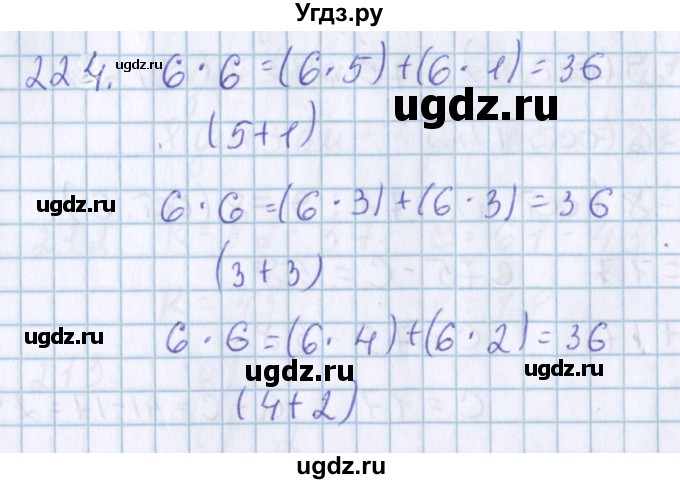 Угдз.ру
224. 6 · 6 = (6 · 5) + (6 · 1) = 36
ugdz.ru
ugdz.ru
(5 + 1)
ugdz.ru
6 · 6 = (6 · 3) + (6 · 3) = 36
(3 + 3)
ugdz.ru
6 · 6 = (6 · 4) + (6 · 2) = 36
ugdz.ru
ugdz.ru
(4 + 2)
ugdz.ru